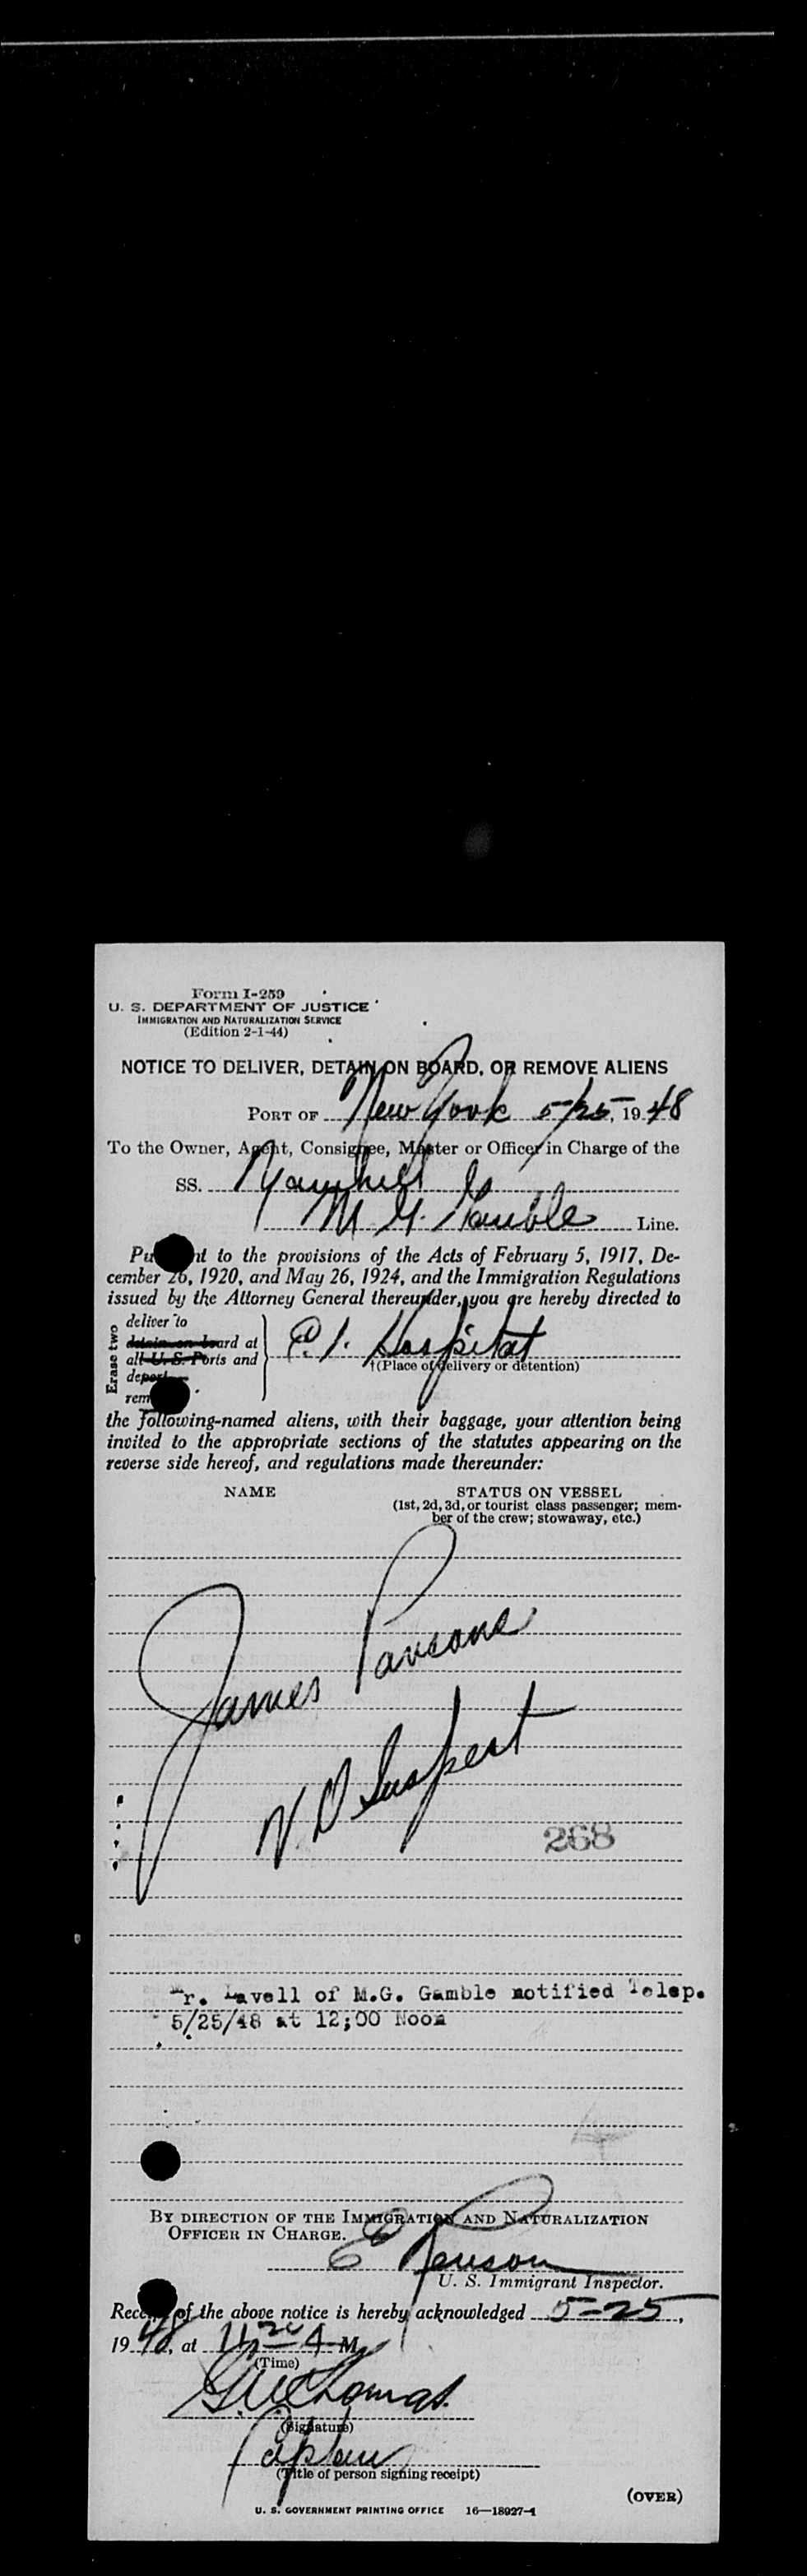 Form I-259
U. S. DEPARTMENT OF JUSTICE
IMMIGRATION AND NATURALIZATION SERVICE
(Edition 2-1-44)
NOTICE TO DELIVER, DETAIN ON BOARD, OR REMOVE ALIENS
PORT OF New York 5/25, 1948
To the Owner, Agent, Consignee, Master or Officer in Charge of the
SS. Yamhill
M. G. Gamble Line.
to the provisions of the Acts of February 5, 1917, De-
cember 26, 1920, and May 26, 1924, and the Immigration Regulations
issued by the Attorney General thereunder, you are hereby directed to
Erase two
deliver to
detain on board at
all U. S. Ports and
E. I. Hospital
†(Place of delivery or detention)
the following-named aliens, with their baggage, your attention being
invited to the appropriate sections of the statutes appearing on the
reverse side hereof, and regulations made thereunder:
NAME STATUS ON VESSEL
(1st, 2d, 3d, or tourist class passenger; mem-
ber of the crew; stowaway, etc.)
James Parsons
V. D Suspect
268
Mr. Lavell of M.G. Gamble notified Telep.
5/25/48 at 12;00 Noon
BY DIRECTION OF THE IMMIGRATION AND NATURALIZATION
OFFICER IN CHARGE.
E
U. S. Immigrant Inspector.
of the above notice is hereby acknowledged 5-25,
1948, at 11 20 A M.
(Time)
G W Thomas
(Signature)
Captain
(Title of person signing receipt)
(OVER)
U. S. GOVERNMENT PRINTING OFFICE 16—18927-1